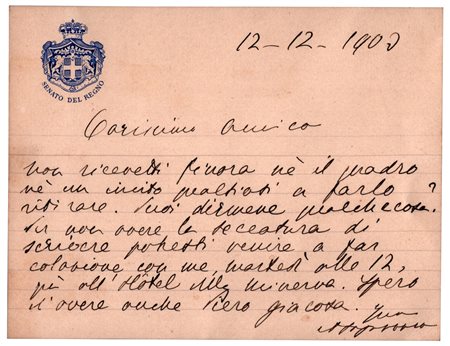 12-12-1903
SENATO DEL REGNO
Carissimo amico
non ricevetti finora nè il quadro
nè un invito qualsiasi a farlo
ritirare. Puoi dirmene qualchecosa?
Per non avere la seccatura di
scrivere potresti venire a far
colazione con me, martedì alle 12,
già all'Hôtel della Minerva. Spero
d'avere anche Piero Giacosa.